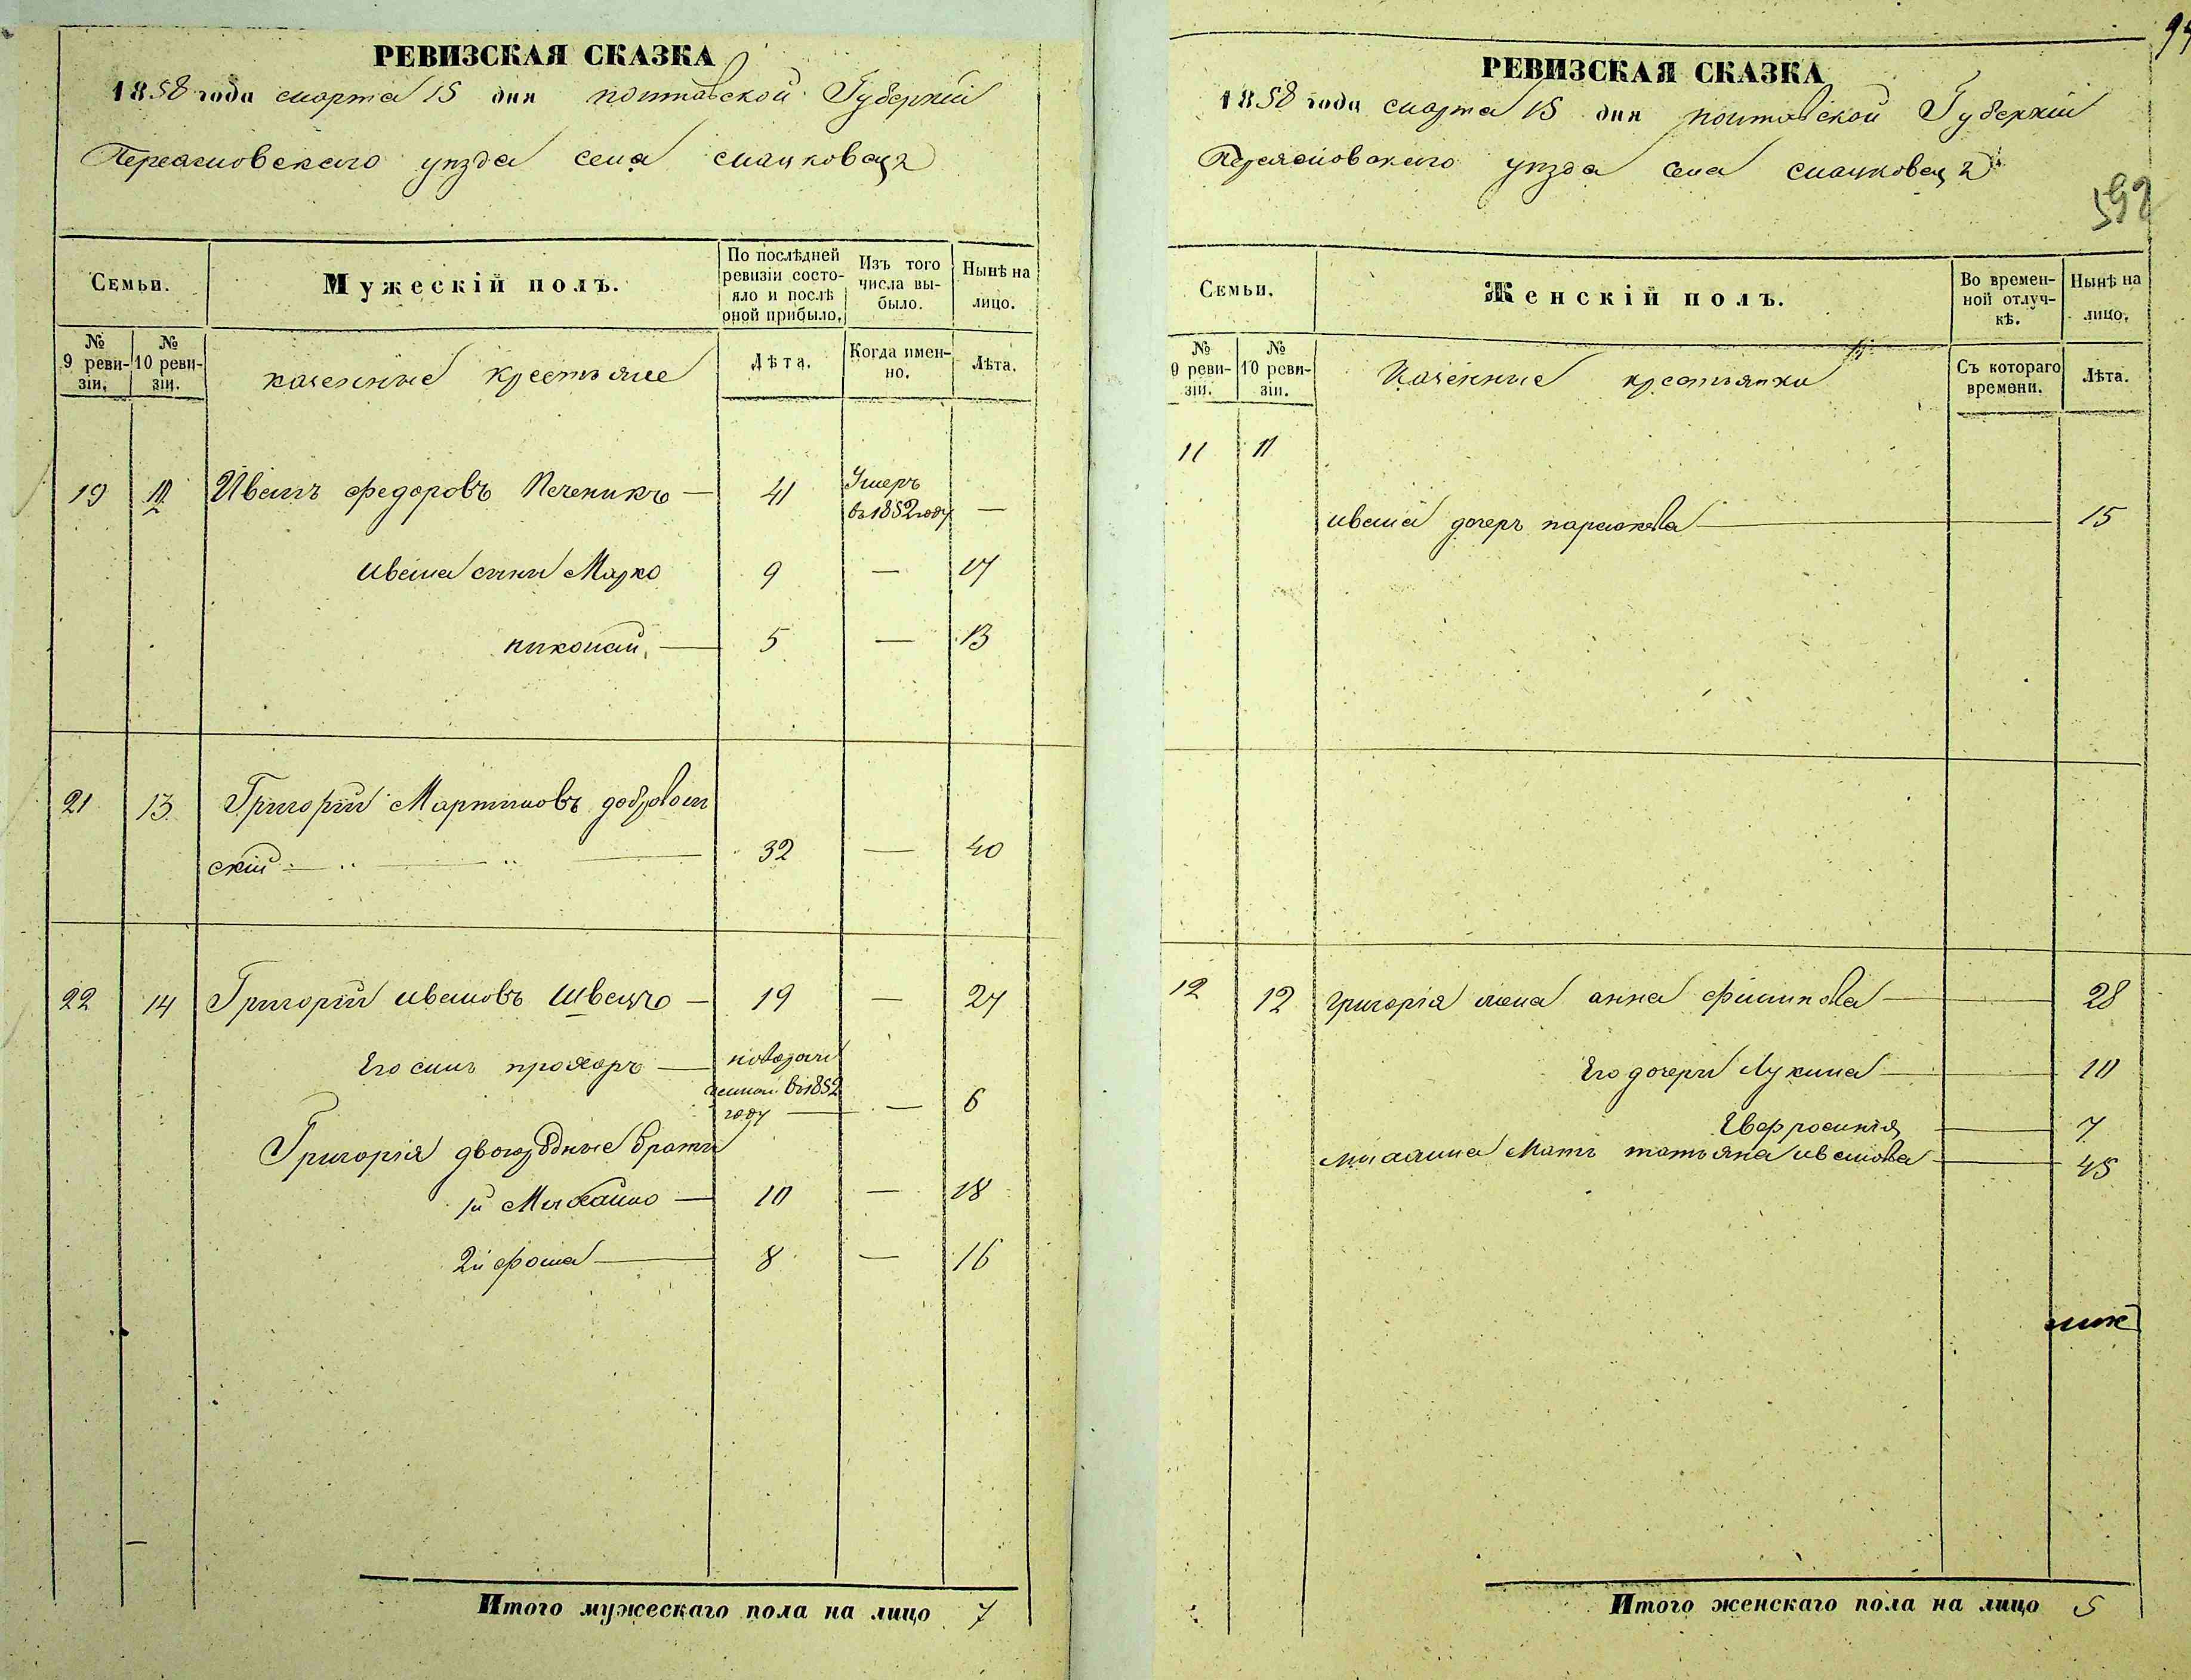 РЕВИЗСКАЯ СКАЗКА
1858 года марта 15 дня полтавской Губернии
Переяславского уезда села
Семьи.
Мужескій полъ.
По послѣдней ревизіи состояло и послѣ оной прибыло.
Изъ того числа выбыло.
Нынѣ на лицо.
№ 9 ревизіи.
№ 10 ревизіи.
казенные крестьяне
Лѣта.
Когда именно.
Лѣта.
19 Иванъ федоровъ Печеникъ — 41 Умеръ в 1852 году —
Ивана сини Марко 9 — 17
николай — 5 — 13
21 13 Григорий Мартиновъ доброволь
ский — 32 — 40
22 14 Григорий ивановъ Швецъ — 19 — 27
Его синъ прохоръ — в 1852 году — 6
Григорія двоюродные брати
1й Михайло — 10 — 18
2й фома — 8 — 16
Итого мужескаго пола на лицо 7
РЕВИЗСКАЯ СКАЗКА
1858 года марта 15 дня полтавской Губернии
Переясловского уезда села
592
Семьи.
Женскій полъ.
Во временной отлучкѣ.
Нынѣ на лицо.
№ 9 ревизіи.
№ 10 ревизіи.
Казенние крестьянки
Съ котораго времени.
Лѣта.
11 11
ивана дочерь параскева — 15
12 12 григорія жена анна филипова — 28
Его дочери Лукина — 10
Евфросинія — 7
Мать татьяна иванова — 45
Итого женскаго пола на лицо 5